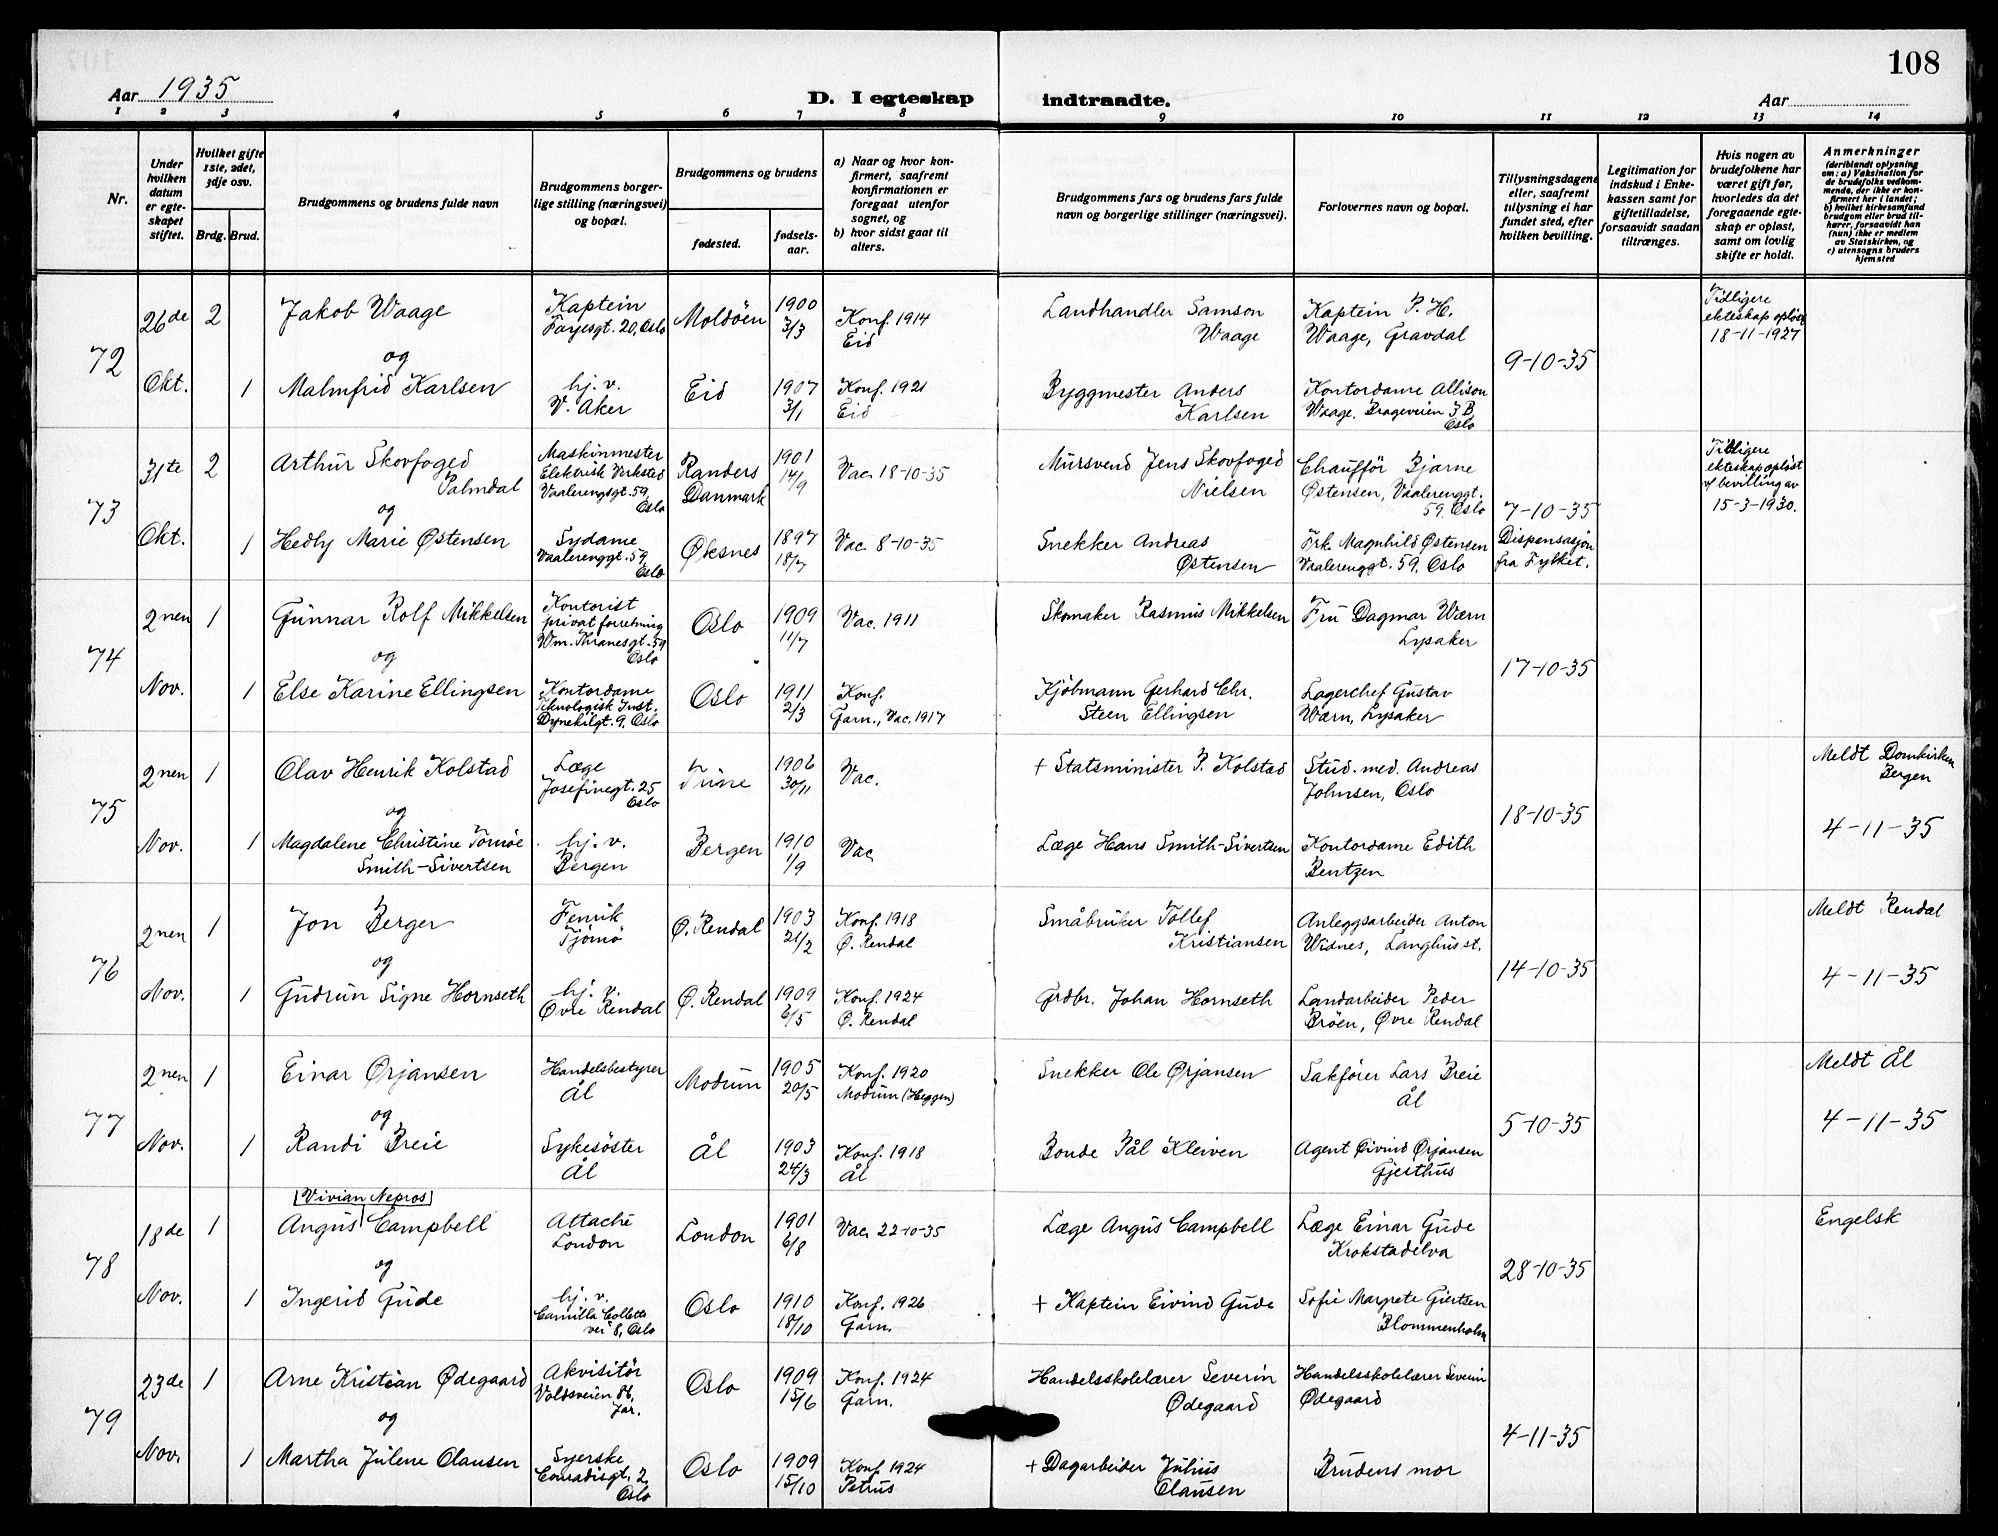 108
Aar 1935
D. I egteskap indtraadte.
Aar
1 2 3 4 5 6 7 8 9 10 11 12 13 14
Nr.
Under hvilken datum er egteskapet stiftet.
Hvilket gifte 1ste, 2det, 3dje osv.
Brdg. Brud.
Brudgommens og brudens fulde navn
Brudgommens borgerlige stilling (næringsvei) og bopæl.
Brudgommens og brudens
fødested.
fødselsaar.
a) Naar og hvor konfirmert, saafremt konfirmationen er foregaat utenfor sognet, og
b) hvor sidst gaat til alters.
Brudgommens fars og brudens fars fulde navn og borgerlige stillinger (næringsvei).
Forlovernes navn og bopæl.
Tillysningsdagene eller, saafremt tillysning ei har fundet sted, efter hvilken bevilling.
Legitimation for indskud i Enkekassen samt for giftetilladelse, forsaavidt saadan tiltrænges.
Hvis nogen av brudefolkene har været gift før, hvorledes da det foregaaende egteskap er opløst, samt om lovlig skifte er holdt.
Anmerkninger
(deriblandt oplysning om: a) Vaksination for de brudefolks vedkommende, der ikke er konfirmert her i landet; b) hvilket kirkesamfund brudgom eller brud tilhører, forsaavidt han (hun) ikke er medlem av Statskirken, og c) utensogns bruders hjemsted
72
26de Okt.
2
Jakob Waage
Kaptein
Farjesgt. 20, Oslo
Moldöen
1900
3/3
Konf. 1914
Eid
Landhandler Samson
Waage
Kaptein P. H.
Waage, Gravdal
9-10-35
Tidligere
ekteskap opløst
18-11-1927
og
1
Malmfrid Karlsen
hj. v.
V. Aker
Eid
1907
3/1
Konf. 1921
Eid
Byggmester Anders
Karlsen
Kontordame Allison
Waage, Brageveien 3 B
Oslo
73
31te Okt.
2
Arthur Skovfoged
Palmdal
Maskinmester
Elektrisk Verksted
Vaalerengsgt. 59,
Oslo
Randers
Danmark
1901
14/9
Vac. 18-10-35
Mursvend Jens Skovfoged
Nielsen
Chaufför Bjarne
Østensen, Vaalerenggt.
59. Oslo
7-10-35
Dispensasjon
fra Fylket.
Tidligere
ekteskap opløst
v/ bevilling av
15-3-1930.
og
1
Hedly Marie Østensen
Sydame
Vaalerenggt. 59,
Oslo
Øksnes
1897
18/7
Vac. 8-10-35
Snekker Andreas
Østensen
Frk. Magnhild Østensen
Vaalerenggt. 59. Oslo
74
2nen Nov.
1
Gunnar Rolf Mikkelsen
Kontorist
privat forretning
Wm. Thranesgt. 59
Oslo
Oslo
1909
11/7
Vac. 1911
Skomaker Rasmus Mikkelsen
Fru Dagmar Wærn
Lysaker
17-10-35
og
1
Else Karine Ellingsen
Kontordame
Teknologisk Inst.
Dynekilgt. 9. Oslo
Oslo
1911
2/3
Konf.
Garn., Vac. 1917
Kjöbmann Gerhard Chr.
Steen Ellingsen
Lagerchef Gustav
Wærn, Lysaker
75
2nen Nov.
1
Olav Henrik Kolstad
Læge
Josefinegt. 25
Oslo
Tune
1906
30/11
Vac.
+ Statsminister P. Kolstad
Stud. med. Andreas
Johnsen, Oslo
18-10-35
Meldt Domkirken
Bergen
4-11-35
og
1
Magdalene Christine Tornöe
Smith-Sivertsen
hj. v.
Bergen
Bergen
1910
1/9
Vac
Læge Hans Smith-Sivertsen
Kontordame Edith
Bentzen
76
2nen Nov.
1
Jon Berger
Fenrik
Tjömö
Ø. Rendal
1903
21/2
Konf. 1918
Ø. Rendal
Småbruker Tollef
Kristiansen
Anleggsarbeider Anton
Widnes, Langhus st.
14-10-35
Meldt Rendal
4-11-35
og
1
Gudrun Signe Hornseth
hj. v.
Øvre Rendal
Ø. Rendal
1909
6/5
Konf. 1924
Ø. Rendal
Grdbr. Johan Hornseth
Landarbeider Peder
Bröen, Øvre Rendal
77
2nen Nov.
1
Einar Ørjansen
Handelsbestyrer
Ål
Modum
1905
20/5
Konf. 1920
Modum (Heggen)
Snekker Ole Ørjansen
Sakfører Lars Breie
Ål
5-10-35
Meldt Ål
4-11-35
og
1
Randi Breie
Sykesöster
Ål
Ål
1903
24/3
Konf. 1918
Ål
Bonde Pål Kleiven
Agent Øivind Ørjansen
Gjerthus
78
18de Nov.
1
Vivian Nepros
Angus Campbell
Attaché
London
London
1901
6/8
Vac. 22-10-35
Læge Angus Campbell
Læge Einar Gude
Krokstadelva
28-10-35
Engelsk
og
1
Ingerid Gude
hj. v.
Camilla Colletts
vei 8, Oslo
Oslo
1910
18/10
Konf. 1926
Garn.
+ Kaptein Eivind Gude
Sofie Margrete Giertsen
Blommenholm
79
23de Nov.
1
Arne Kristian Ødegaard
Akvisitör
Voldsveien 86,
Jar.
Oslo
1909
15/6
Konf. 1924
Garn.
Handelsskolelærer Severin
Ødegaard
Handelsskolelærer Severin
Ødegaard
4-11-35
og
1
Martha Julene Clausen
Syerske
Conradisgt. 2
Oslo
Oslo
1909
15/10
Konf. 1924
Petrus
+ Dagarbeider Julius
Clausen
Brudens mor